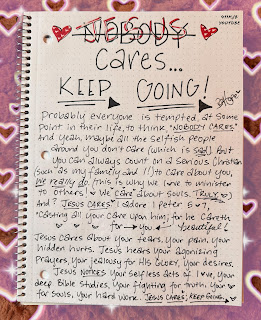 JESUS
NOBODY
Cares.
KEEP GOING!
YOUTUBE
Probably everyone is tempted, at some
point in their life, to think, "NOBODY CARES."
And yeah, maybe all the selfish people
around you don't care (which is sad). But
you can always count on a serious Christian
(such as my family and I!) to care about you,
We really do. (This is why we love to minister
to others!) We care about souls. TRULY.
And? JESUS CARES! I adore 1 Peter 5:7,
"Casting all your care upon him; for he careth
for → you ← beautiful!
Jesus cares about your tears, your pain, your
hidden hurts. Jesus hears your agonizing
prayers, your jealousy for His glory, your desires.
Jesus notices your selfless acts of love, your
deep Bible studies, your fighting for truth, your
for souls, your hard work. JESUS CARES; KEEP GOING.